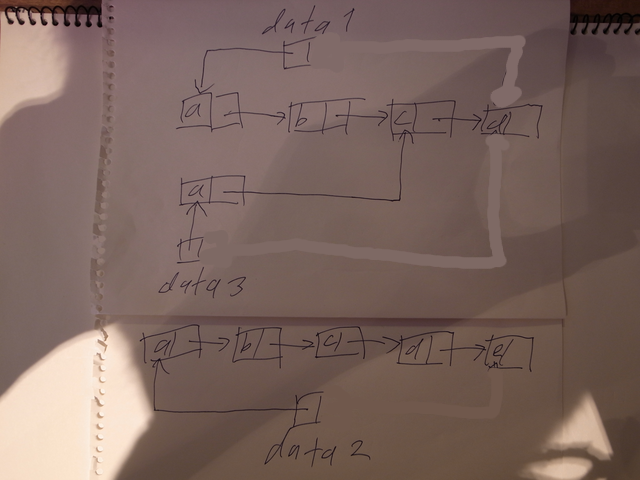 data 1
a b c d
a
data 3
a b c d e
data 2